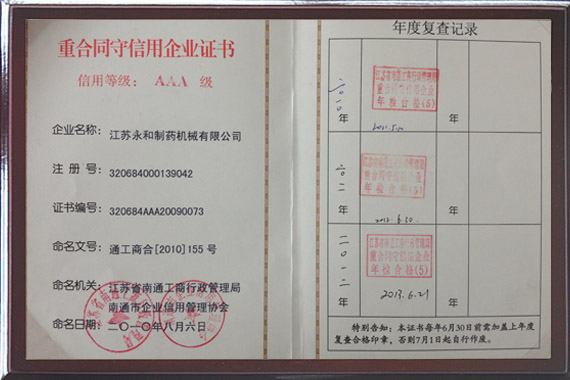 重合同守信用企业证书
信用等级： AAA 级
企业名称： 江苏永和制药机械有限公司
注 册 号： 320684000139042
证书编号： 320684AAA20090073
命名文号： 通工商合[2010]155号
命名机关： 江苏省南通工商行政管理局
南通市企业信用管理协会
命名日期： 二〇一〇年八月六日
年度复查记录
二〇一〇
年
江苏省南通工商行政管理局
重合同守信用企业
年检合格(6)
年
二〇一一
年
重合同守信用企业
年检合格(5)
年
二〇一二
年
重合同守信用企业
年检合格(5)
2013.6.21
年
特别告知：本证书每年6月30日前需加盖上年度
复查合格印章，否则7月1日起自行作废。